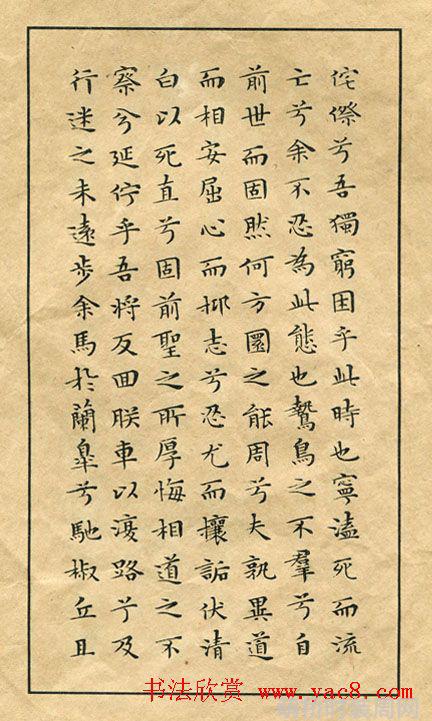 侘傺兮吾獨窮困乎此時也寧溘死而流
亡兮余不忍為此態也鷙鳥之不羣兮自
前世而固然何方圜之能周兮夫孰異道
而相安屈心而抑志兮忍尤而攘詬伏清
白以死直兮固前聖之所厚悔相道之不
察兮延佇乎吾將反回朕車以復路兮及
行迷之未遠步余馬於蘭皋兮馳椒丘且
书法欣赏 www.yac8.com